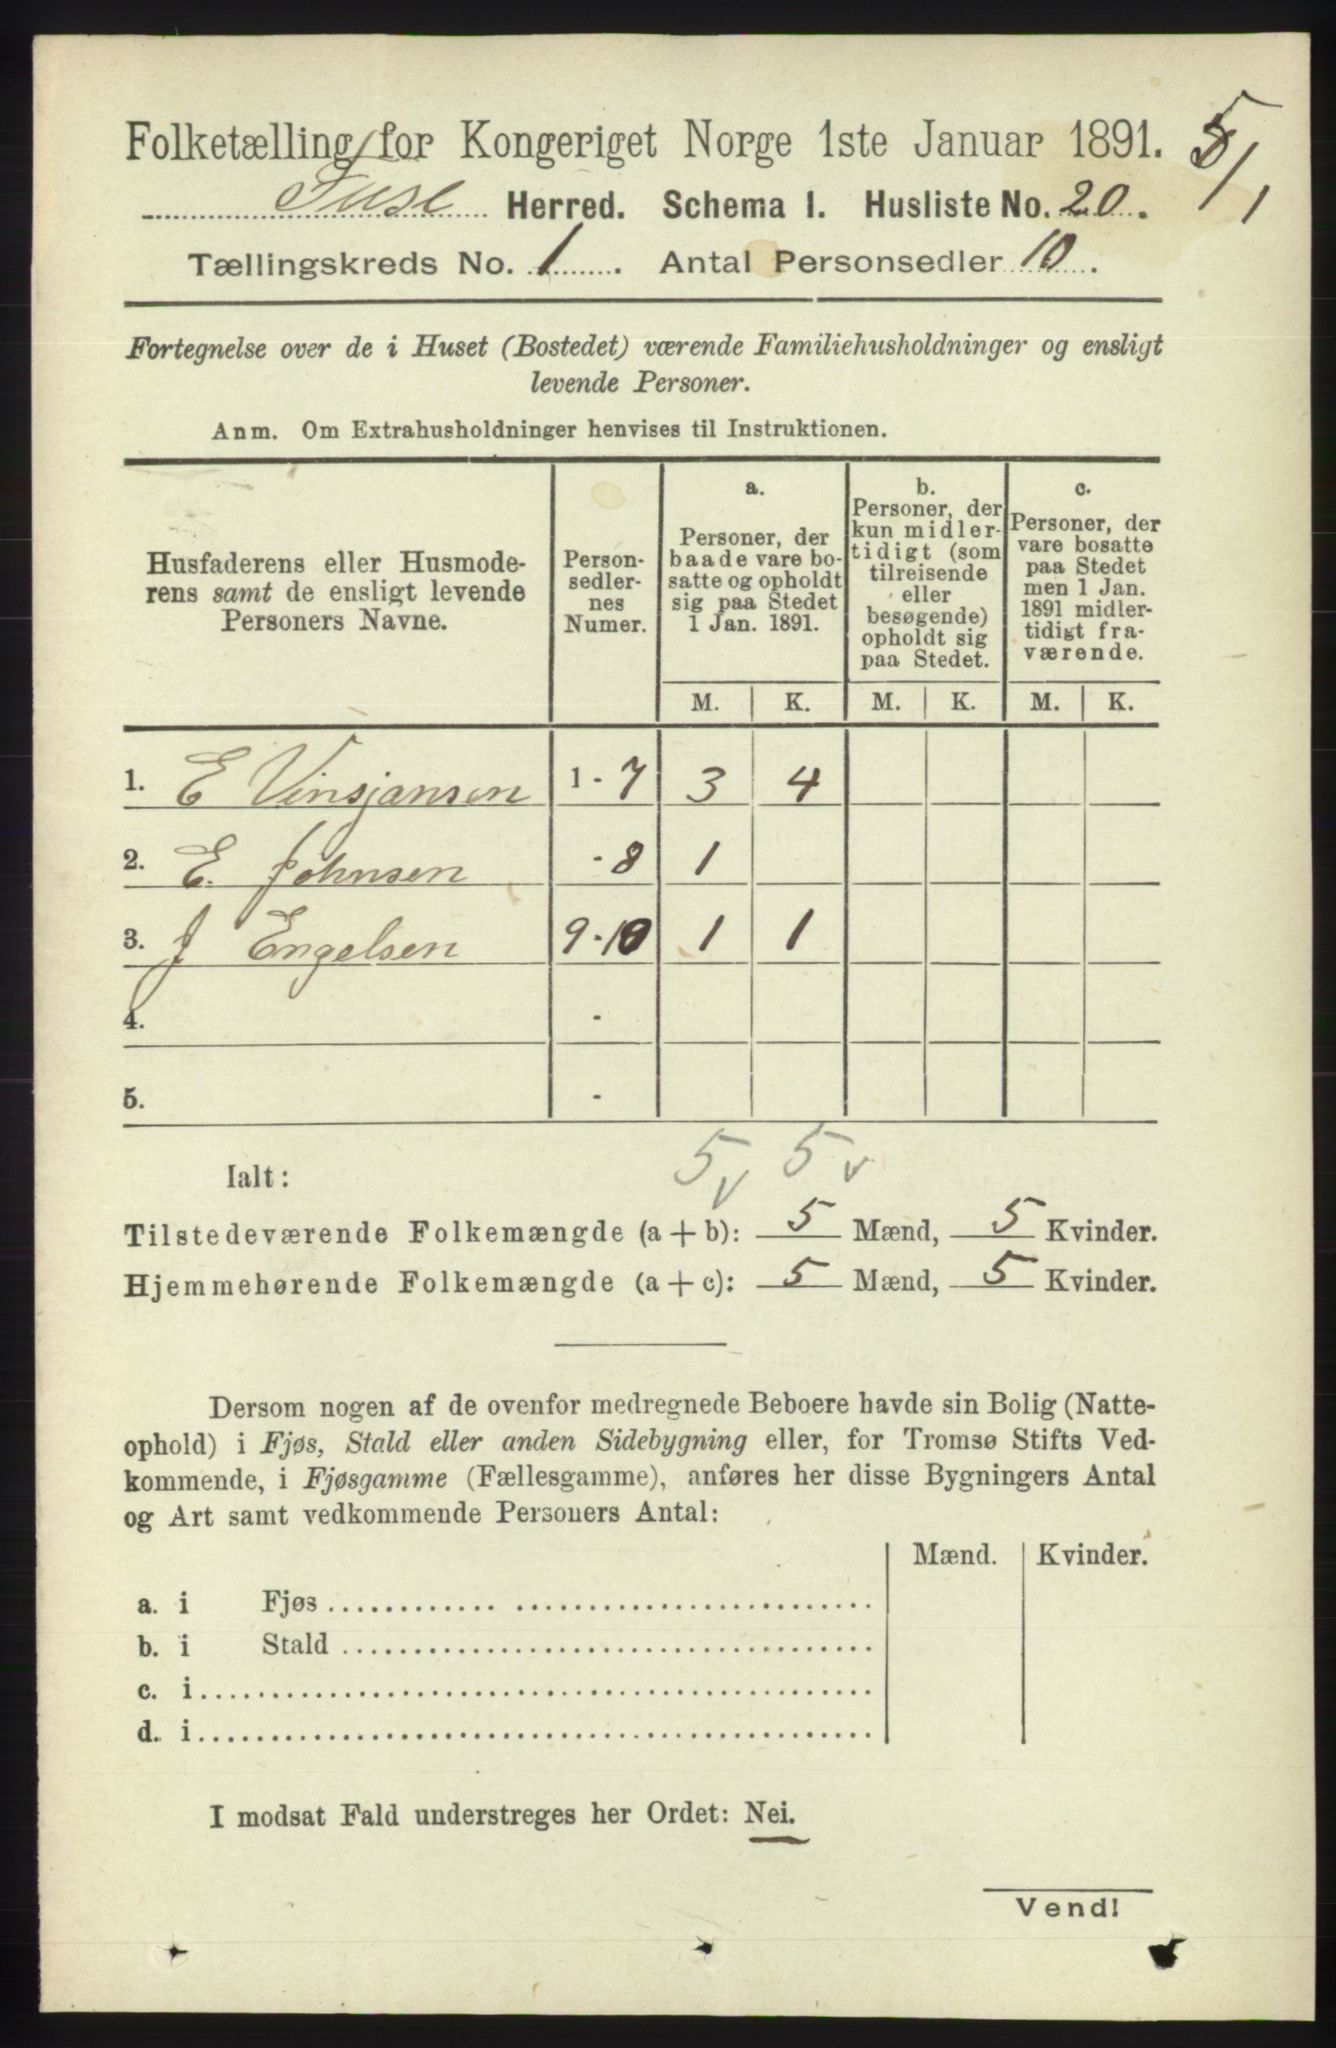 Folketælling for Kongeriget Norge 1ste Januar 1891.
5/1
Fuse Herred. Schema I. Husliste No. 20.
Tællingskreds No. 1. Antal Personsedler 10.
Fortegnelse over de i Huset (Bostedet) værende Familiehusholdninger og ensligt
levende Personer.
Anm. Om Extrahusholdninger henvises til Instruktionen.
Husfaderens eller Husmode-
rens samt de ensligt levende
Personers Navne.
Person-
sedler-
nes
Numer.
a.
Personer, der
baade vare bo-
satte og opholdt
sig paa Stedet
1 Jan. 1891.
b.
Personer, der
kun midler-
tidigt (som
tilreisende
eller
besøgende)
opholdt sig
paa Stedet.
c.
Personer, der
vare bosatte
paa Stedet
men 1 Jan.
1891 midler-
tidigt fra-
værende.
M. K. M. K. M. K.
1. E Vinsjansen 1 - 7 3 4
2. E. Johnsen - 8 1
3. J Engelsen 9 - 10 1 1
4. -
5. -
5 v 5 v
Ialt:
Tilstedeværende Folkemængde (a + b): 5 Mænd, 5 Kvinder.
Hjemmehørende Folkemængde (a + c): 5 Mænd, 5 Kvinder.
Dersom nogen af de ovenfor medregnede Beboere havde sin Bolig (Natte-
ophold) i Fjøs, Stald eller anden Sidebygning eller, for Tromsø Stifts Ved-
kommende, i Fjøsgamme (Fællesgamme), anføres her disse Bygningers Antal
og Art samt vedkommende Personers Antal:
Mænd. Kvinder.
a. i Fjøs
b. i Stald
c. i
d. i
I modsat Fald understreges her Ordet: Nei.
Vend!